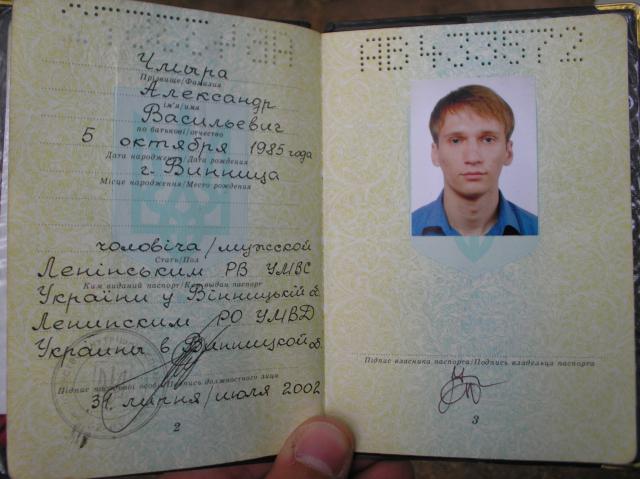 Чмыра
Прізвище/Фамилия
Александр
ім'я/имя
Васильевич
по батькові/отчество
5 октября 1985 года
Дата народження/Дата рождения
г. Винница
Місце народження/Место рождения
чоловіча/мужской
Стать/Пол
Ленінським РВ УМВС
Ким виданий паспорт/Кем выдан паспорт
України у Вінницькій об.
Ленинским РО УМВД
Украины в Винницкой об.
Підпис посадової особи/Подпись должностного лица
31 липня/июля 2002
2
АВ 433572
Підпис власника паспорта/Подпись владельца паспорта
3